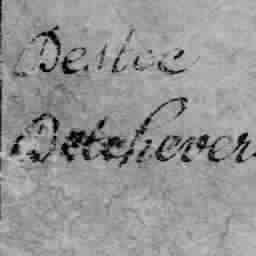 Destoc
Detchever